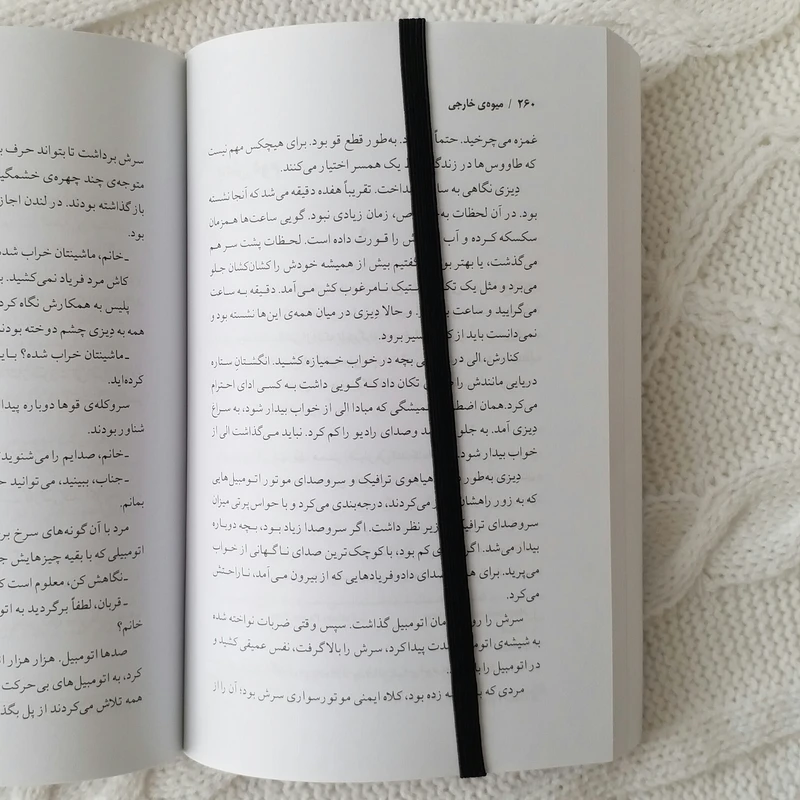 ۲۶۰ / میوه‌ی خارجی
غمزه می‌چرخید. حتماً به‌طور قطع قو بود. برای هیچکس مهم نیست
که طاووس‌ها در یک همسر اختیار می‌کنند.
دِیزی نگاهی به تقریباً هفده دقیقه می‌شد که آنجا نشسته
بود. در آن لحظات زمان زیادی نبود. گویی ساعت‌ها همزمان
سکسکه کرده و آب را قورت داده است. لحظات پشت سر هم
می‌گذشت، یا بهتر بیش از همیشه خودش را کشان‌کشان جلو
می‌برد و مثل یک نامرغوب کش می‌آمد. دقیقه به ساعت
می‌گرایید و ساعت و حالا دِیزی در میان همه‌ی این‌ها نشسته بود و
نمی‌دانست باید از برود.
کنارش، الی در بچه در خواب خمیازه کشید. انگشتان ستاره
دریایی مانندش را تکان داد که گویی داشت به کسی ادای احترام
می‌کرد. همان همیشگی که مبادا الی از خواب بیدار شود، به سراغ
دِیزی آمد. به جلو وصدای رادیو را کم کرد. نباید می‌گذاشت الی از
خواب بیدار شود.
دِیزی به‌طور هیاهوی ترافیک و سروصدای موتور اتومبیل‌هایی
که به زور راهشان می‌کردند، درجه‌بندی می‌کرد و با حواس‌پرتی میزان
سروصدای زیر نظر داشت. اگر سروصدا زیاد بود، بچه دوباره
بیدار می‌شد. اگر کم بود، با کوچک‌ترین صدای ناگهانی از خواب
می‌پرید. برای دادوفریادهایی که از بیرون می‌آمد، ناراحتش
می‌کرد.
سرش را اتومبیل گذاشت. سپس وقتی ضربات نواخته شده
به شیشه‌ی شدت پیدا کرد، سرش را بالا گرفت، نفس عمیقی کشید و
در اتومبیل را
مردی که زده بود، کلاه ایمنی موتورسواری سرش بود؛ آن را از
سرش برداشت تا بتواند حرف
متوجه‌ی چند چهره‌ی
باز گذاشته بودند. در لندن
بود.
ـ خانم، ماشینتان خراب
کاش مرد فریاد نمی‌کشید.
پلیس به همکارش نگاه
همه به دِیزی چشم دوخته
ـ ماشینتان خراب شده؟
کرده‌اید.
سروکله‌ی قوها دوباره
شناور بودند.
ـ خانم، صدایم را
ـ جناب، ببینید، می‌توانید
بمانم.
مرد با آن گونه‌های سرخ
اتومبیلی که با بقیه چیزهایش
ـ نگاهش کن، معلوم است
ـ قربان، لطفاً برگردید به
خانم؟
صدها اتومبیل. هزار هزار
کرد، به اتومبیل‌های بی‌حرکت
همه تلاش می‌کردند از پل